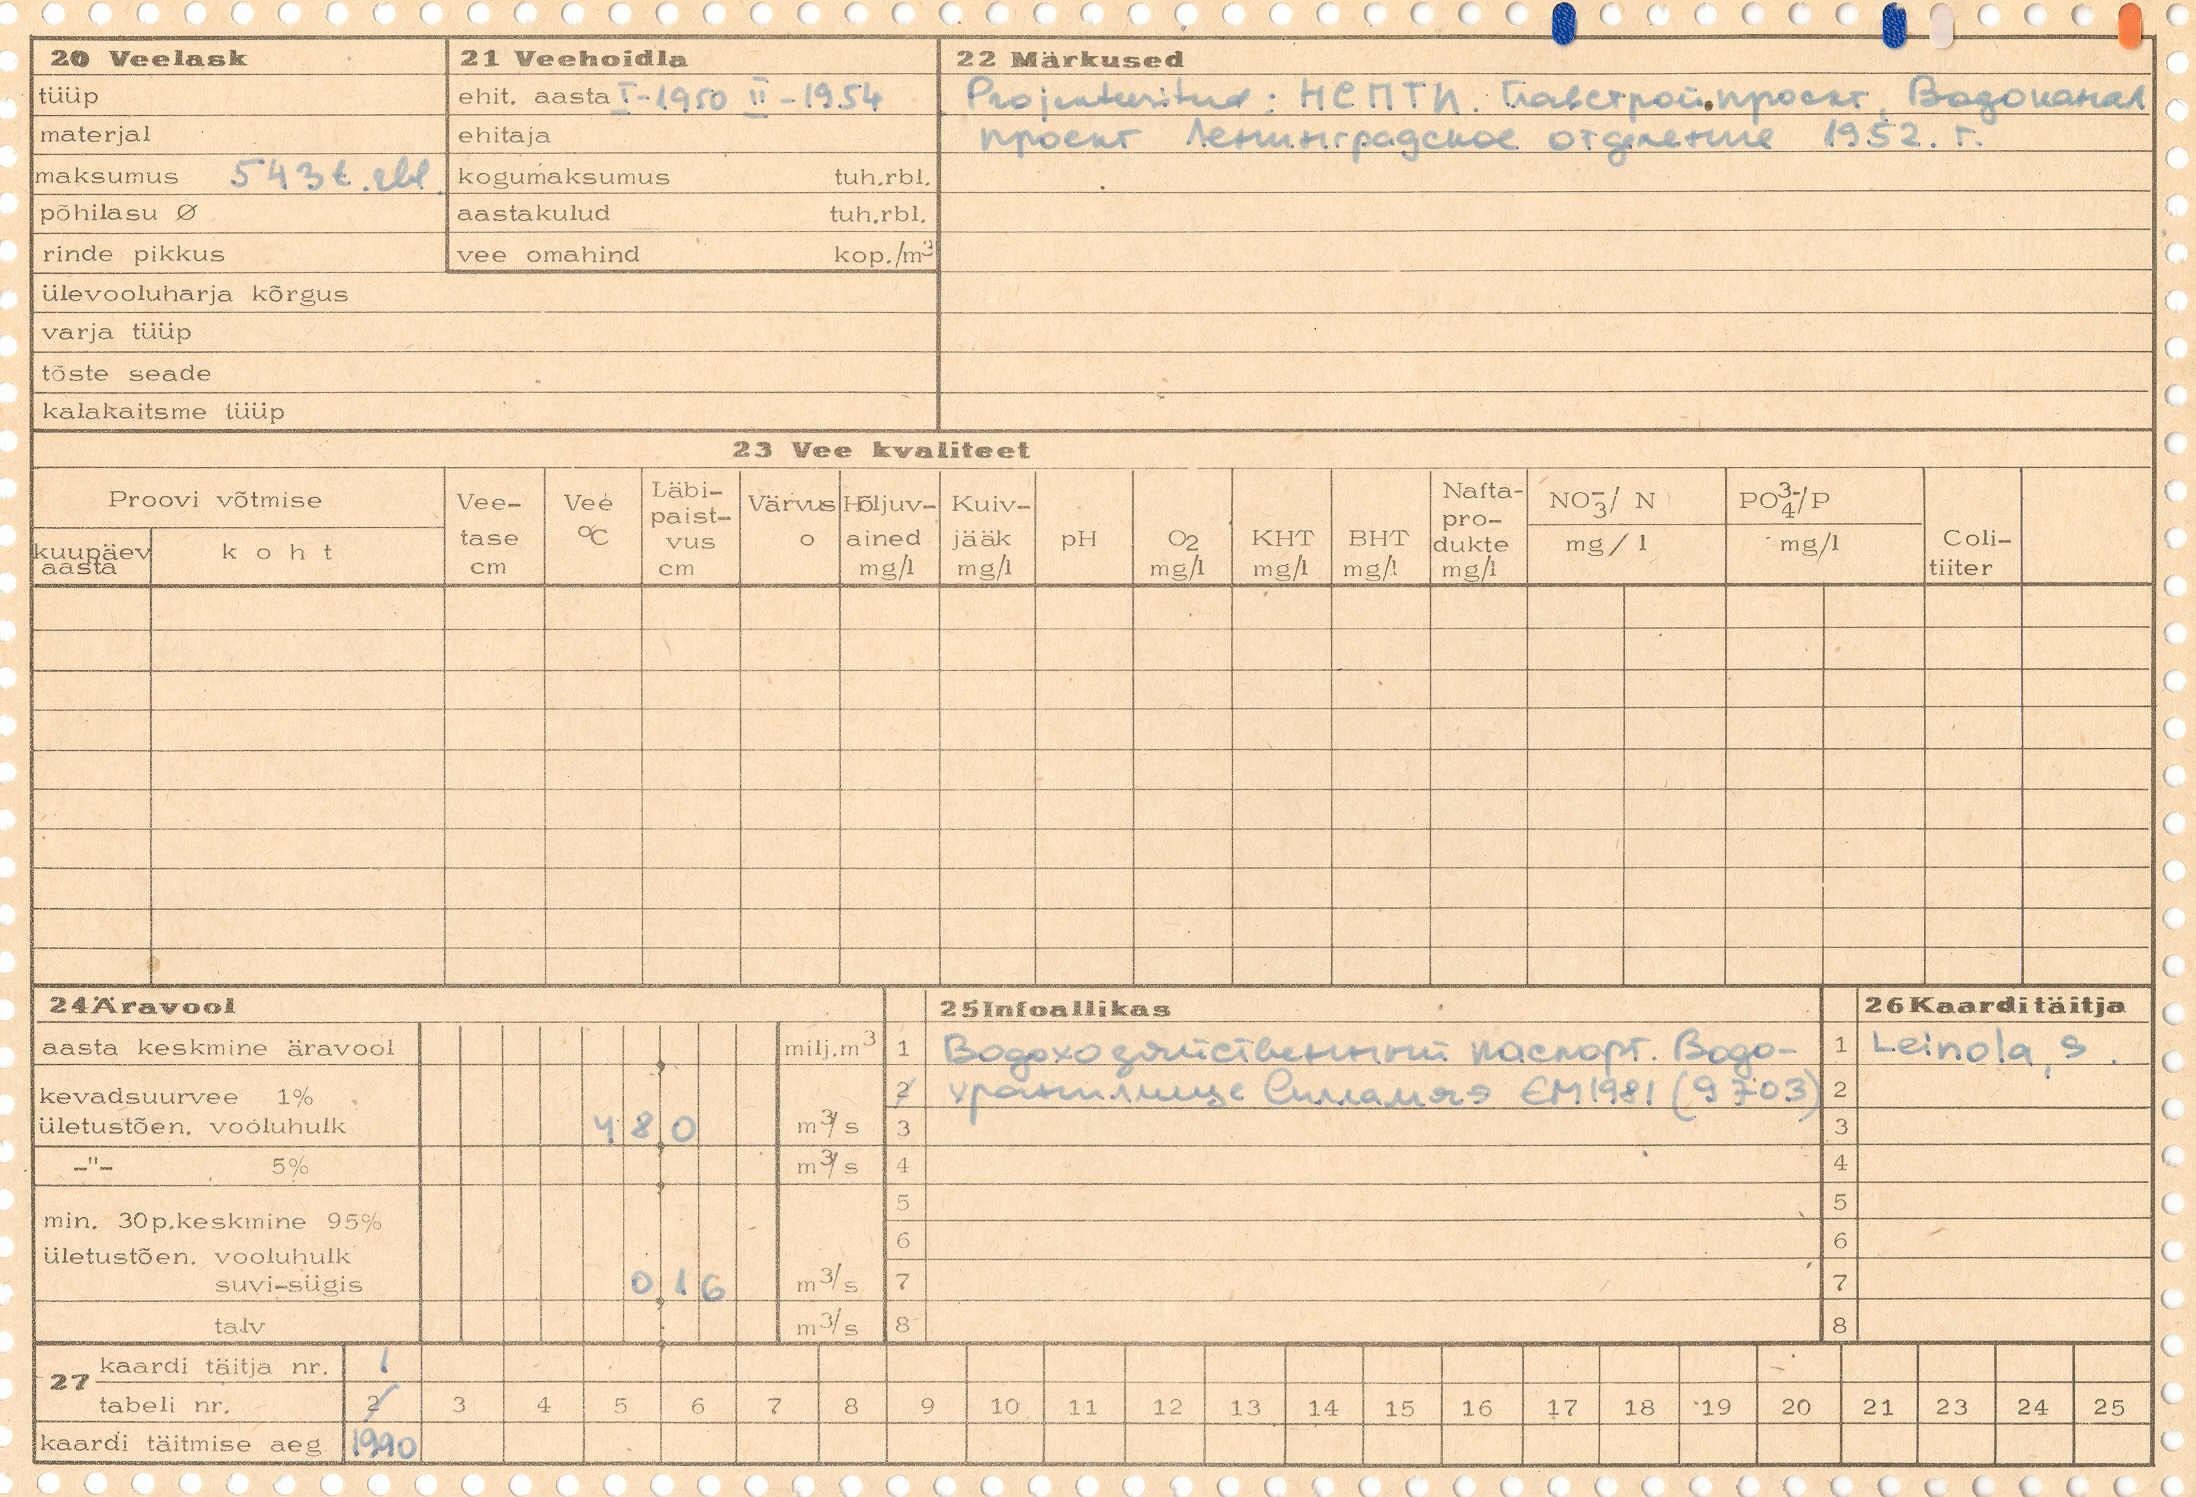 20 Veelask
tüüp
materjal
maksumus 543t.rbl.
põhilasu Ø
rinde pikkus
ülevooluharja kõrgus
varja tüüp
tõste seade
kalakaitsme tüüp
21 Veehoidla
ehit. aasta I-1950 II-1954
ehitaja
kogumaksumus tuh.rbl.
aastakulud tuh.rbl.
vee omahind kop./m³
22 Märkused
Projekteeritud: НСПТИ. Главстройпроект, Водоканал
проект Ленинградское отделение 1952. г.
23 Vee kvaliteet
Proovi võtmise
kuupäev aasta
koht
Vee-tase cm
Vee °C
Läbi-paist-vus cm
Värvus o
Hõljuv-ained mg/l
Kuiv-jääk mg/l
pH
O2 mg/l
KHT mg/l
BHT mg/l
Nafta-pro-dukte mg/l
NO3⁻/ N mg/l
PO4³⁻/P mg/l
Coli-tiiter
24 Äravool
aasta keskmine äravool milj.m³
kevadsuurvee 1%
ületustõen. vooluhulk 480 m³/s
-"- 5% m³/s
min. 30p.keskmine 95%
ületustõen. vooluhulk
suvi-sügis 016 m³/s
talv m³/s
25 Infoallikas
1 Водохозяйственный паспорт. Водо-
2 хранилище Силламяэ ЕМ1981 (9703)
3
4
5
6
7
8
26 Kaardi täitja
1 Leinola, S.
2
3
4
5
6
7
8
27 kaardi täitja nr. 1
tabeli nr. 2 3 4 5 6 7 8 9 10 11 12 13 14 15 16 17 18 19 20 21 23 24 25
kaardi täitmise aeg 1990